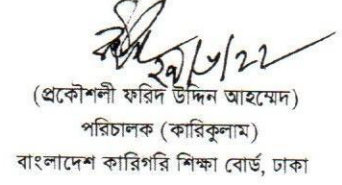 (প্রকৌশলী ফরিদ উদ্দিন আহম্মেদ)
পরিচালক (কারিকুলাম)
বাংলাদেশ কারিগরি শিক্ষা বোর্ড, ঢাকা